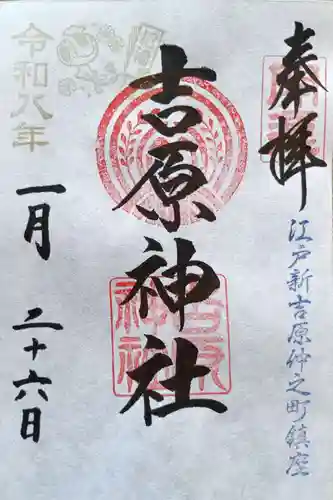 奉拝
江戸新吉原仲之町鎮座
吉原神社
令和八年
一月二十六日